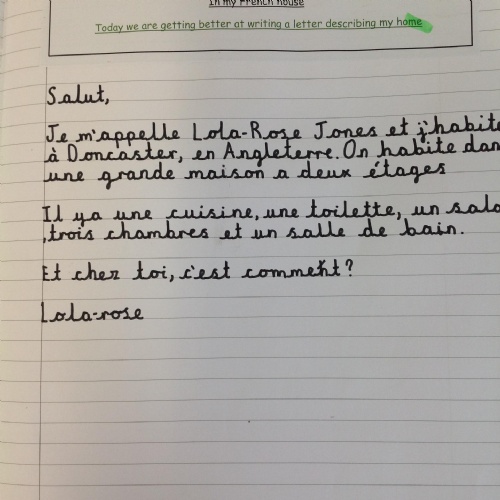 In my French house
Today we are getting better at writing a letter describing my home
Salut,
Je m'appelle Lola-Rose Jones et j'habite
à Doncaster, en Angleterre. On habite dan
une grande maison a deux étages
Il ya une cuisine, une toilette, un salo
, trois chambres et un salle de bain.
Et chez toi, c'est comment?
Lola-rose